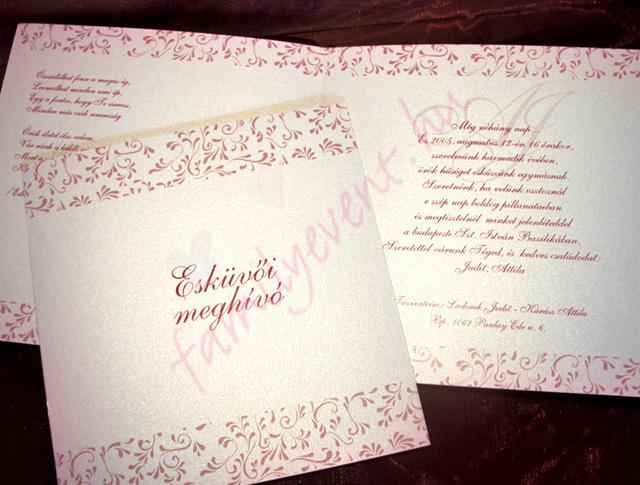 Összedőlhet fenn a magas ég,
Leomolhat minden ami ép.
Egy a fontos, hogy Te szeress,
Minden más csak semmiség.
Örök életet élsz velem,
Esküvői
meghívó
AJ
Még néhány nap...
És 2005. augusztus 12-én 16 órakor,
szerelmünk harmadik évében,
örök hűséget esküszünk egymásnak.
Szeretnénk, ha velünk osztoznál
e szép nap boldog pillanataiban
és megtisztelnél minket jelenléteddel
a budapesti Szt. István Bazilikában.
Szeretettel várunk Téged, és kedves családodat:
Judit, Attila
Távirateim: Ladinek Judit - Kárász Attila
Bp. 1061 Paulay Ede u. 6.
familyevent.hu